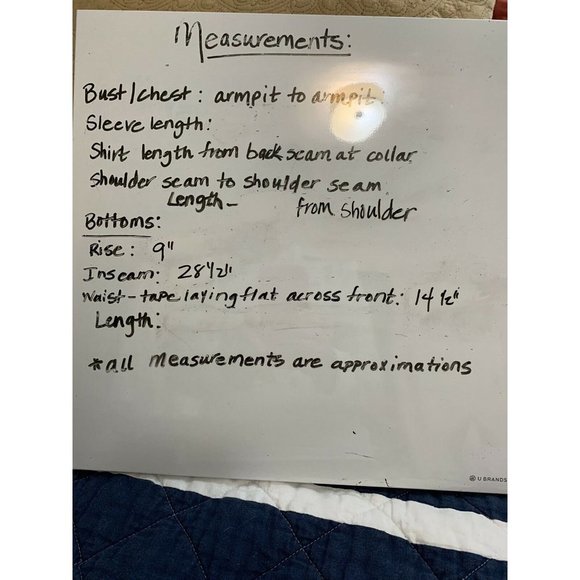 Measurements:
Bust/chest: armpit to armpit:
Sleeve length:
Shirt length from back seam at collar
Shoulder seam to shoulder seam
Length- from shoulder
Bottoms:
Rise: 9"
Inseam: 28 1/2"
Waist-tape laying flat across front: 14 1/2"
Length:
*all measurements are approximations
U BRANDS